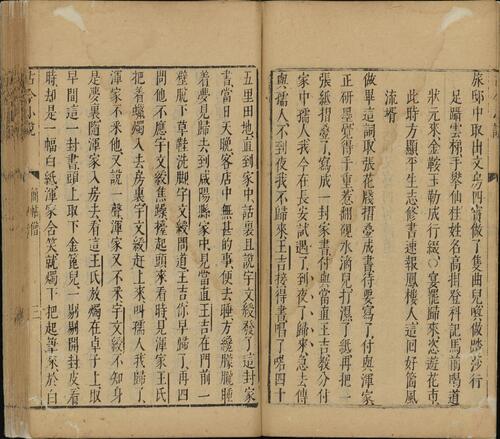 旅邸中取出文房四寳做了隻曲兒喚做踏莎行
足躡雲梯手攀仙桂姓名高掛登科記馬前喝道
狀元來金鞍玉勒成行綴○宴罷歸來恣遊花市
此時方顯平生志修書速報鳳樓人這囬好箇風
流壻
做畢這詞取張花牋摺疊成書待要寫了付與渾家
正研墨覺得手重惹翻硯水滴兒打濕了紙再把一
張紙摺疊了寫成一封家書付與當直王吉教分付
家中孺人我今在長安試過了到夜了歸來急去傳
與孺人不到夜我不歸來王吉接得書唱了喏四十
五里田地直到家中話裏且說宇文綬發了這封家
書當日天晚客店中無甚的事便去睡方纔朦朧睡
着夢見歸去到咸陽縣家中見當直王吉在門前一
壁脫下草鞋洗腳宇文綬問道王吉你早歸了再四
問他不應宇文綬焦燥擡起頭來看時見渾家王氏
把着蠟燭入去房裏宇文綬赶上來叫孺人我歸了
渾家不釆他又說一聲渾家又不釆宇文綬不知身
是夢裏隨渾家入房去看這王氏放燭在卓子上取
早間這一封書頭上取下金篦兒一剔剔開封皮看
時却是一幅白紙渾家含笑就燭下把起筆來於白
古今小說
簡帖僧
三